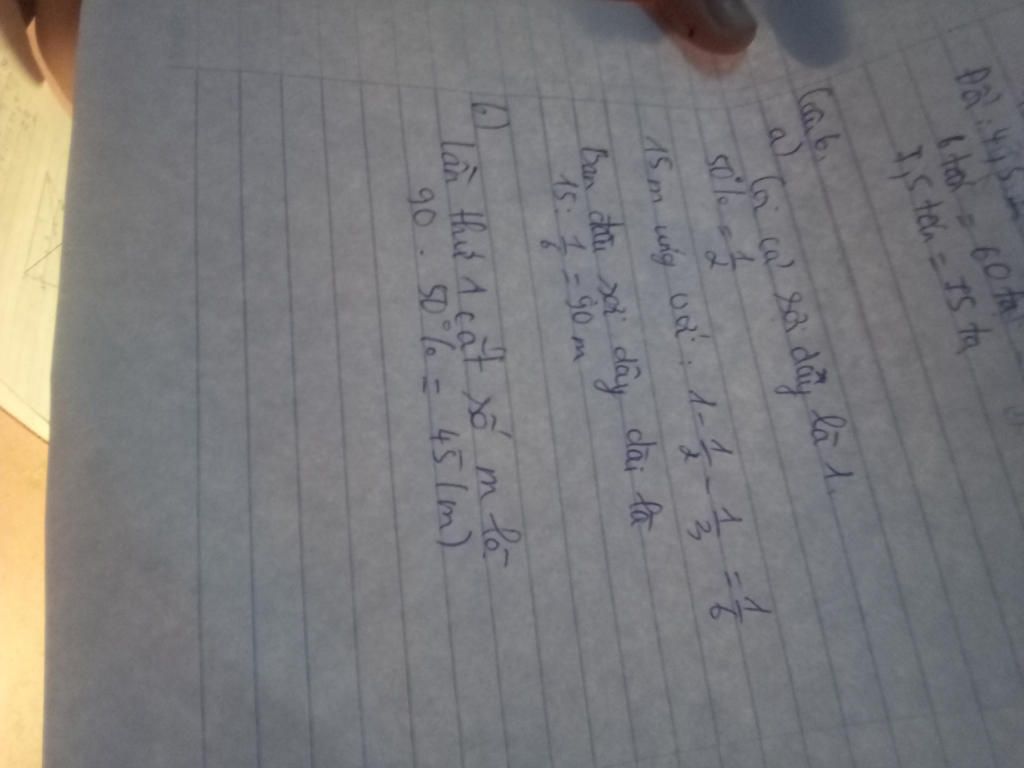 Đổi: 4,5m
6 tấn = 60 tạ
7,5 tấn = 75 tạ
Câu 6.
a) Gọi cả sợi dây là 1.
50% = 1/2
15m ứng với : 1 - 1/2 - 1/3 = 1/6
Ban đầu sợi dây dài là
15 : 1/6 = 90 m
b)
Lần thứ 1 cắt số m là
90 . 50% = 45 (m)